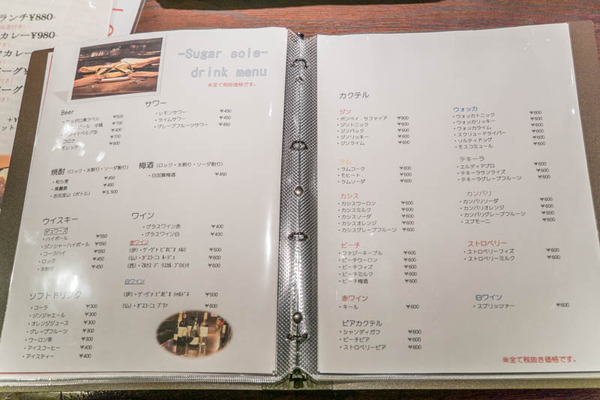 ランチ¥880
カレー¥980
-Sugar sole-
drink menu
※全て税抜価格です。
Beer
¥500
¥700
¥700
サワー
・レモンサワー ¥450
・ライムサワー ¥450
・グレープフルーツサワー ¥450
焼酎(ロック・水割り・ソーダ割り)
¥450
¥450
(ボトル) ¥3,500
梅酒(ロック・水割り・ソーダ割り)
・白加賀梅酒 ¥450
ウイスキー
・ハイボール ¥550
・ジンジャーハイボール ¥550
・コークハイ ¥550
・ロック ¥550
・水割り ¥550
ワイン
・グラスワイン赤 ¥400
・グラスワイン白 ¥400
赤ワイン
白ワイン
ソフトドリンク
・コーラ ¥300
・ジンジャエール ¥300
・オレンジジュース ¥300
・グレープフルーツ ¥300
・ウーロン茶 ¥300
・アイスコーヒー ¥400
・アイスティー ¥400
カクテル
ジン
・ボンベイ サファイア ¥600
・ジントニック ¥600
・ジンバック ¥600
・ジンリッキー ¥600
・ジンライム ¥600
ラム
・ラムコーク ¥600
・モヒート ¥600
・ラムソーダ ¥600
カシス
・カシスウーロン ¥600
・カシスミルク ¥600
・カシスソーダ ¥600
・カシスオレンジ ¥600
・カシスグレープフルーツ ¥600
ピーチ
・ファジーネーブル ¥600
・ピーチウーロン ¥600
・ピーチフィズ ¥600
・ピーチミルク ¥600
・ピーチ梅酒 ¥600
赤ワイン
・キール ¥600
ビアカクテル
・シャンディガフ ¥600
・ピーチビア ¥600
・ストロベリービア ¥600
ウォッカ
・ウォッカトニック ¥600
・ウォッカリッキー ¥600
・ウォッカライム ¥600
・スクリュードライバー ¥600
・ソルティドッグ ¥600
・モスコミュール ¥600
テキーラ
・エルディアブロ ¥600
・テキーラサンライズ ¥600
・テキーラグレープフルーツ ¥600
カンパリ
・カンパリソーダ ¥600
・カンパリオレンジ ¥600
・カンパリグレープフルーツ ¥600
・スプモーニ ¥600
ストロベリー
・ストロベリーフィズ ¥600
・ストロベリーミルク ¥600
白ワイン
・スプリッツァー ¥600
※全て税抜き価格です。